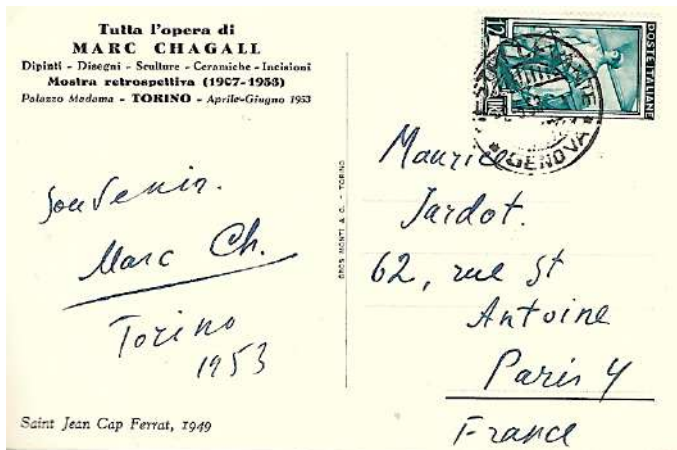 Tutta l'opera di
MARC CHAGALL
Dipinti - Disegni - Sculture - Ceramiche - Incisioni
Mostra retrospettiva (1907-1953)
Palazzo Madama - TORINO - Aprile-Giugno 1953
Souvenir.
Marc Ch.
Torino
1953
Saint Jean Cap Ferrat, 1949
GROS MONTI & C. - TORINO
12
POSTE ITALIANE
LEVANTE
GENOVA
Maurice
Jardot.
62, rue St
Antoine
Paris 4
France